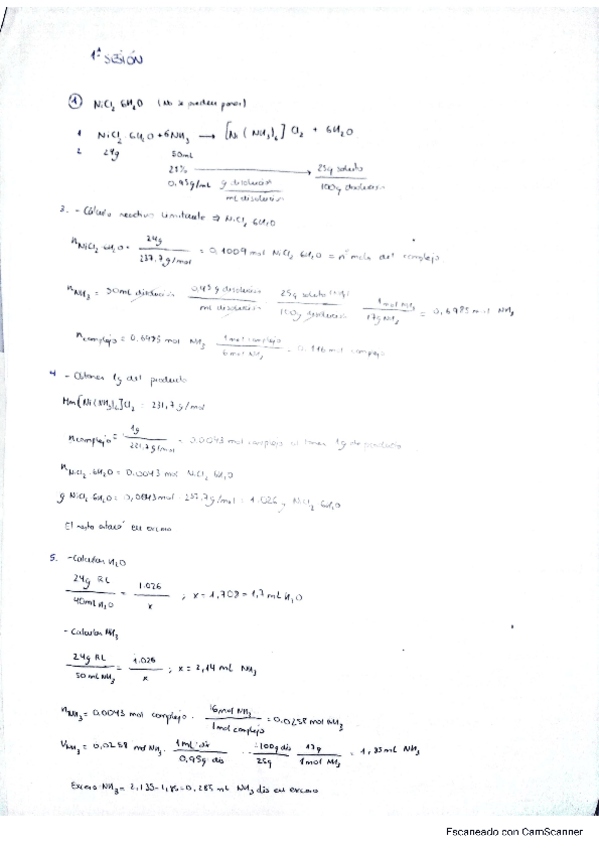 1ª SESIÓN
① NiCl2 6H2O (No se pueden poner)
1 NiCl2 6H2O + 6NH3 → [Ni(NH3)6]Cl2 + 6H2O
2. 24g 50mL
25% → 25g soluto / 100g disolución
0,95g/mL g disolución / mL disolución
3. - Cálculo reactivo limitante ⇒ NiCl2 6H2O
nNiCl2 6H2O = 24g / 237,7g/mol = 0,1009 mol NiCl2 6H2O = nº mols del complejo
nNH3 = 50mL disolución · 0,95g disolución / mL disolución · 25g soluto / 100g disolución · 1 mol NH3 / 17g NH3 = 0,6985 mol NH3
ncomplejo = 0,6985 mol NH3 · 1 mol complejo / 6 mol NH3 = 0,116 mol complejo
4 - Obtener 1g del producto
Mm[Ni(NH3)6]Cl2 = 231,7g/mol
ncomplejo = 1g / 231,7g/mol = 0,0043 mol complejo si tienes 1g de producto
nNiCl2 6H2O = 0,0043 mol NiCl2 6H2O
g NiCl2 6H2O = 0,0043 mol · 237,7g/mol = 1,026g NiCl2 6H2O
El resto estará en exceso
5. - Calcular H2O
24g RL / 40mL H2O = 1.026 / x ; x = 1,708 = 1,7 mL H2O
- Calcular NH3
24g RL / 50mL NH3 = 1.026 / x ; x = 2,14 mL NH3
nNH3 = 0,0043 mol complejo · 6 mol NH3 / 1 mol complejo = 0,0258 mol NH3
VNH3 = 0,0258 mol NH3 · 1mL dis / 0,95g dis · 100g dis / 25g · 17g / 1 mol NH3 = 1,85 mL NH3
Exceso NH3 = 2,135 - 1,85 = 0,285 mL NH3 dis en exceso
Escaneado con CamScanner